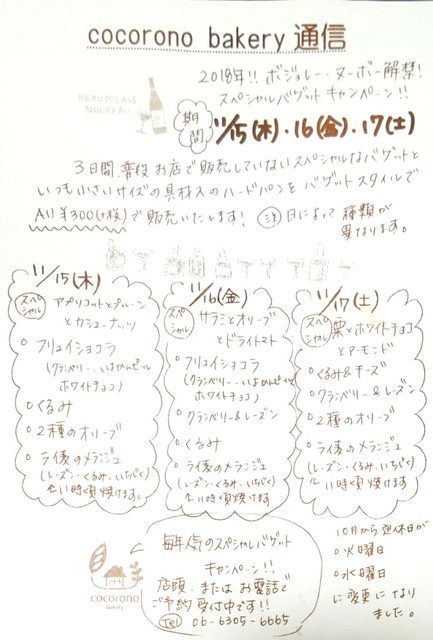 cocorono bakery 通信
2018年!! ボジョレー・ヌーボー解禁!
スペシャルバゲット キャンペーン!!
BEAUJOLAIS
NOUVEAU
期間
11/15(木)・16(金)・17(土)
3日間、普段お店で販売していないスペシャルなバゲットと
いつも小さいサイズの具材入のハードパンをバゲットスタイルで
All ¥300(+税)で販売いたします! 注 日によって種類が
異なります。
11/15(木)
スペシャル
アプリコットとプルーン
とカシューナッツ
○フリュイショコラ
(クランベリー・いよかんピール
ホワイトチョコ)
○くるみ
○2種のオリーブ
○ライ麦のメランジュ
(レーズン・くるみ・いちじく)
11時頃焼けます。
11/16(金)
スペシャル
サラミとオリーブ
とドライトマト
○フリュイショコラ
(クランベリー・いよかんピール
ホワイトチョコ)
○クランベリー&レーズン
○くるみ
○ライ麦のメランジュ
(レーズン・くるみ・いちじく)
11時頃焼けます
11/17(土)
スペシャル
栗とホワイトチョコ
とアーモンド
○くるみ&チーズ
○クランベリー&レーズン
○2種のオリーブ
○ライ麦のメランジュ
(レーズン・くるみ・いちじく)
11時頃焼けます。
毎年人気のスペシャルバゲット
キャンペーン!!
店頭、またはお電話で
ご予約受付中です!!
Tel 06-6305-6665
cocorono
bakery
10月から定休日が
○火曜日
○水曜日
に変更になり
ました。